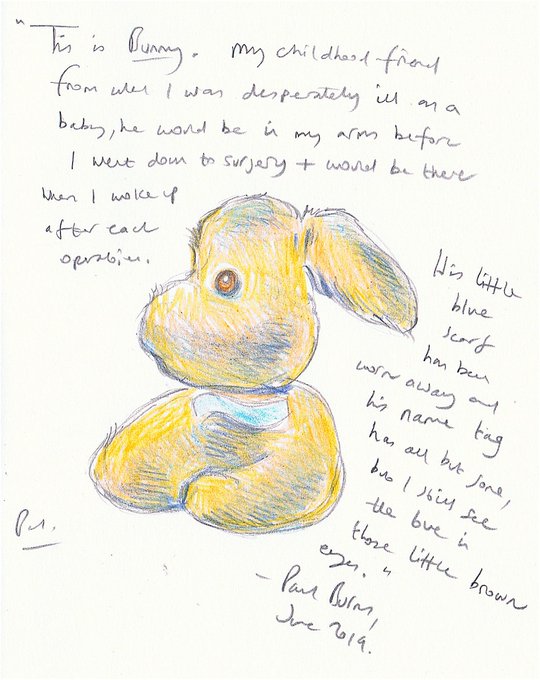 "This is Bunny. My childhood friend
from when I was desperately ill as a
baby, he would be in my arms before
I went down to surgery + would be there
when I woke up
after each
operation.
His little
blue
scarf
has been
worn away and
his name tag
has all but gone,
but I still see
the love in
those little brown
eyes."
- Paul Burns,
June 2019.